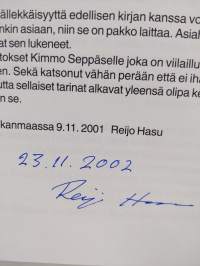 ällekkäisyyttä edellisen kirjan kanssa vo
nkin asiaan, niin se on pakko laittaa. Asiai
at sen lukeneet.
tokset Kimmo Seppäselle joka on viilaillu
en. Sekä katsonut vähän perään että ei iha
utta sellaiset tarinat alkavat yleensä olipa ke
n se.
kanmaassa 9.11. 2001 Reijo Hasu
23.11. 2002
Reijo Hasu